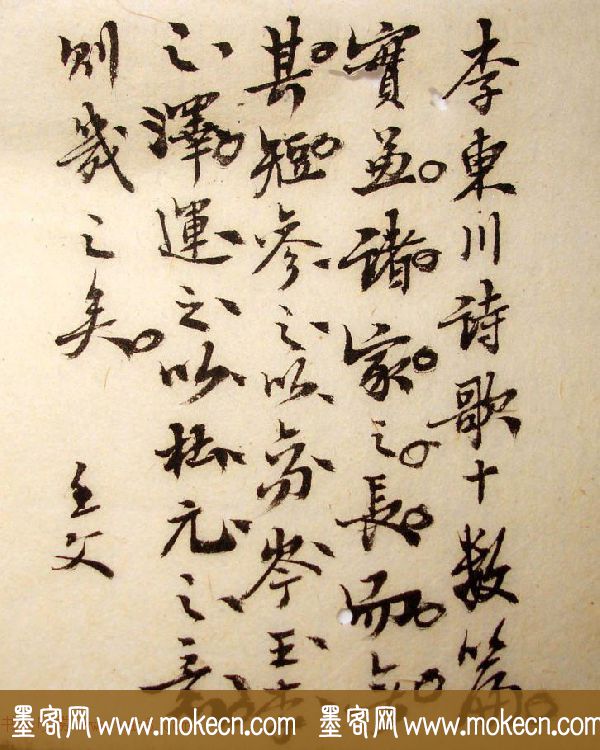 李東川詩歌十數篇
實兼諸家之長而無
其短參之以高岑王李
之澤運之以杜元之意
則幾之矣 壬父
墨客网 www.mokecn.com 墨客网 www.mokecn.com